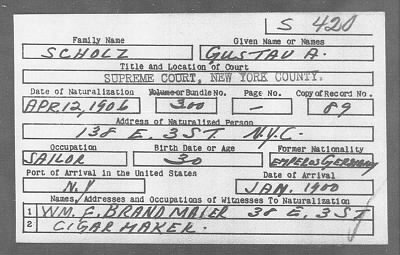 S 420
Family Name Given Name or Names
SCHOLZ GUSTAV A.
Title and Location of Court
SUPREME COURT, NEW YORK COUNTY.
Date of Naturalization Volume or Bundle No. Page No. Copy of Record No.
APR 12, 1906 300 — 89
Address of Naturalized Person
138 E. 3 ST. N.Y.C.
Occupation Birth Date or Age Former Nationality
SAILOR 30 EMPEROR GERMANY
Port of Arrival in the United States Date of Arrival
N.Y JAN. 1900
Names, Addresses and Occupations of Witnesses To Naturalization
1 WM. F. BRANDMAIER 38 E. 3 ST
2 CIGAR MAKER.